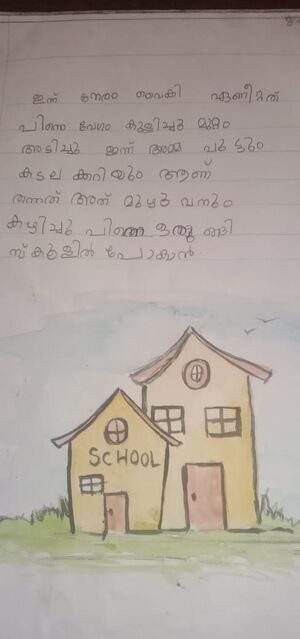 ഇന്ന് നേരം വൈകി എണീറ്റത്
പിന്നെ വേഗം കുളിച്ചു മുറ്റം
അടിച്ചു ഇന്ന് അമ്മ പുട്ടും
കടല ക്കറിയും ആണ്
തന്നത് അത് മുഴുവനും
കഴിച്ചു പിന്നെ ഒരു ങ്ങി
സ്കൂളിൽ പോകാൻ.
SCHOOL